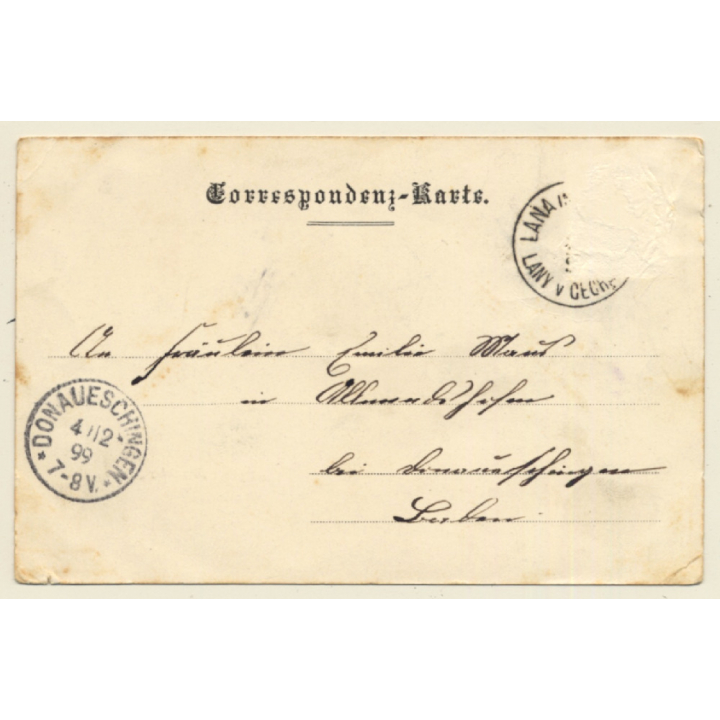 Correspondenz-Karte.
LANA
LANY V CECH
An Fräulein Emilie Maus
in Allmendshofen
bei Donaueschingen
Baden
*DONAUESCHINGEN*
4/12
99
7-8 V.